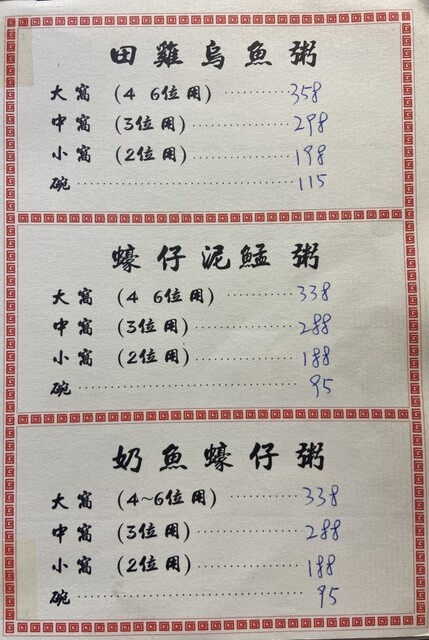 田雞烏魚粥
大窩 (4 6位用) ·········· 358
中窩 (3位用) ·············· 298
小窩 (2位用) ·············· 198
碗 ································ 115
蠔仔泥鯭粥
大窩 (4 6位用) ·········· 338
中窩 (3位用) ·············· 288
小窩 (2位用) ·············· 188
碗 ································ 95
奶魚蠔仔粥
大窩 (4~6位用) ·········· 338
中窩 (3位用) ·············· 288
小窩 (2位用) ·············· 188
碗 ································ 95